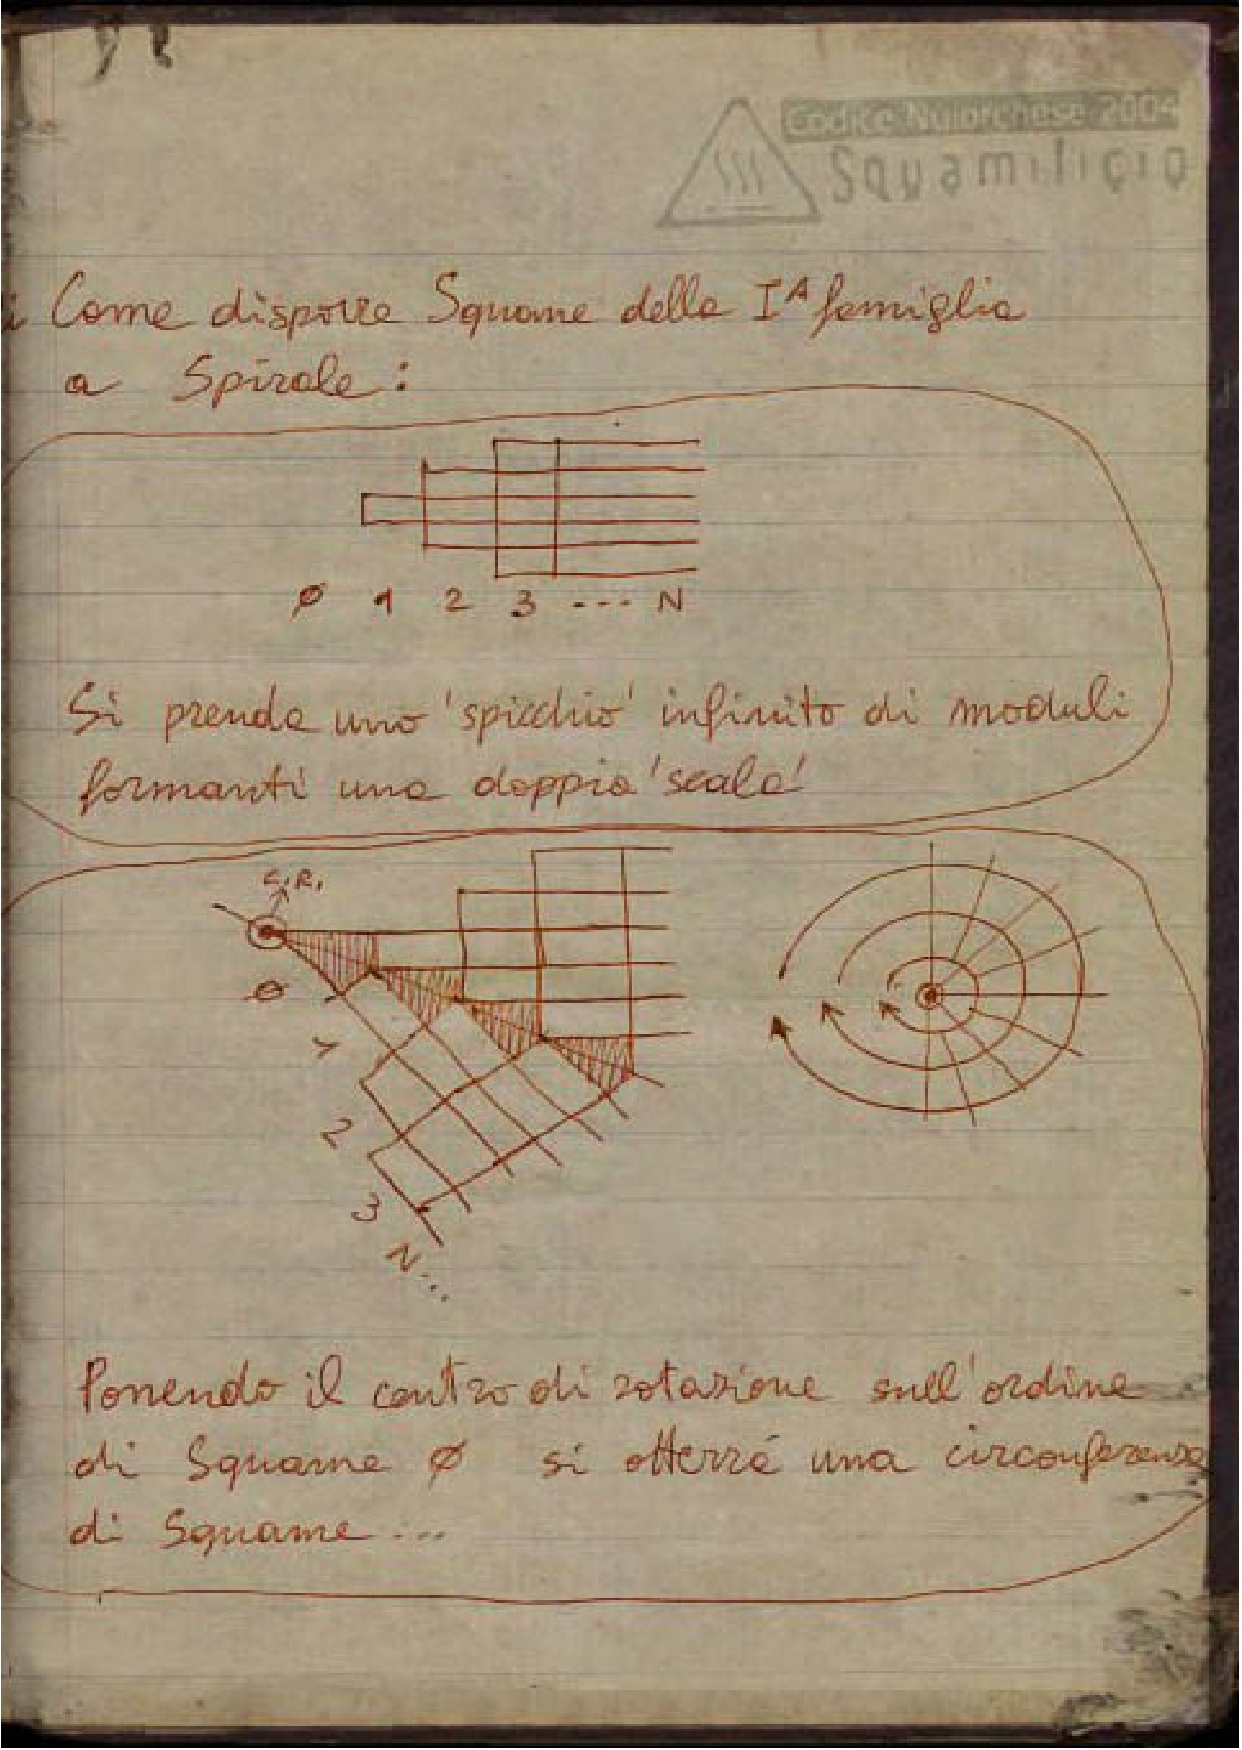 Codice Nuiorchese 2004
Squamificio
Come disporre Squame della Iᴬ famiglia
a Spirale:
Ø 1 2 3 --- N
Si prenda uno 'spicchio' infinito di moduli
formanti una doppia 'scala'
C.R.
Ø
1
2
3
N...
Ponendo il centro di rotazione sull'ordine
di Squame Ø si otterrá una circonferenza
di Squame ...